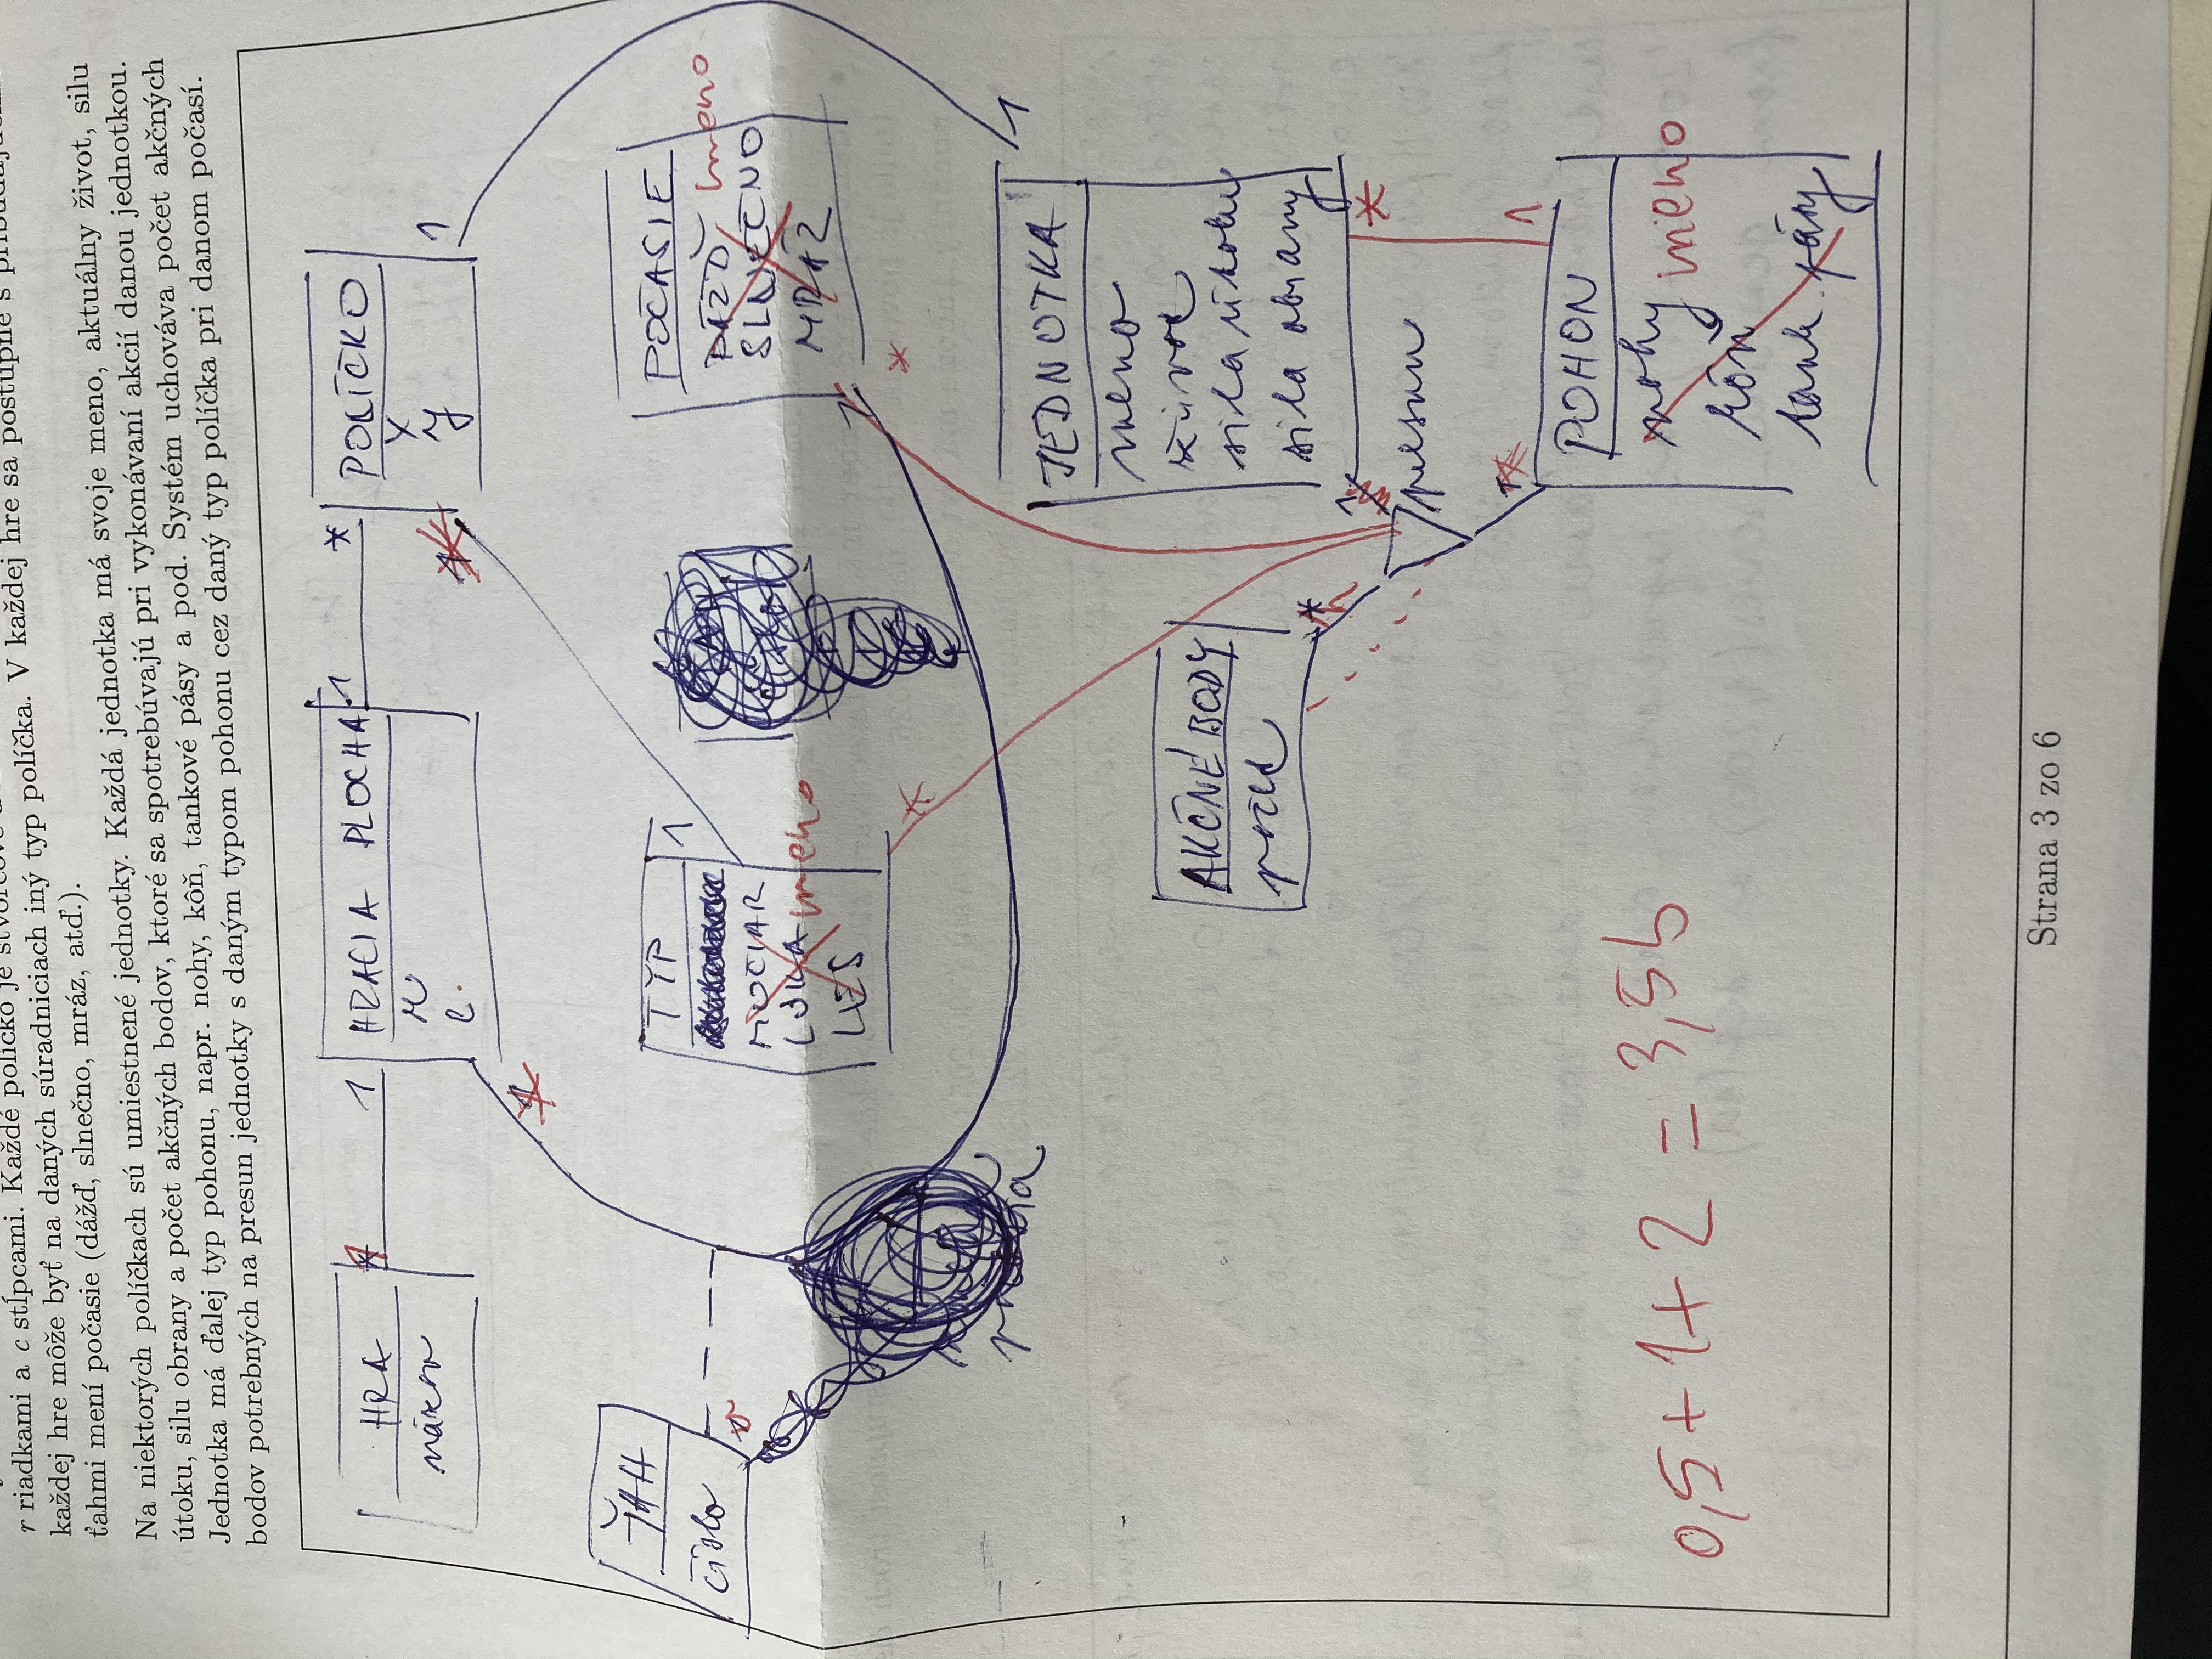 r riadkami a c stĺpcami. Každé políčko je
každej hre môže byť na daných súradniciach iný typ políčka. V každej hre sa postupne s
ťahmi mení počasie (dážď, slnečno, mráz, atď.).
Na niektorých políčkach sú umiestnené jednotky. Každá jednotka má svoje meno, aktuálny život, silu
útoku, silu obrany a počet akčných bodov, ktoré sa spotrebúvajú pri vykonávaní akcií danou jednotkou.
Jednotka má ďalej typ pohonu, napr. nohy, kôň, tankové pásy a pod. Systém uchováva počet akčných
bodov potrebných na presun jednotky s daným typom pohonu cez daný typ políčka pri danom počasí.
HRA
názov
1
HRACIA PLOCHA
r
c
1
*
POLÍČKO
x
y
1
*
*
ŤAH
číslo
TYP
MOČIAR
LÚKA
LES
meno
1
POČASIE
DÁŽĎ
SLNEČNO
MRÁZ
meno
1
*
*
1
JEDNOTKA
meno
život
sila útoku
sila obrany
AKČNÉ BODY
počet
*
presun
*
1
*
POHON
nohy
kôň
tank. pásy
meno
0,5+1+2 = 3,5b
Strana 3 zo 6